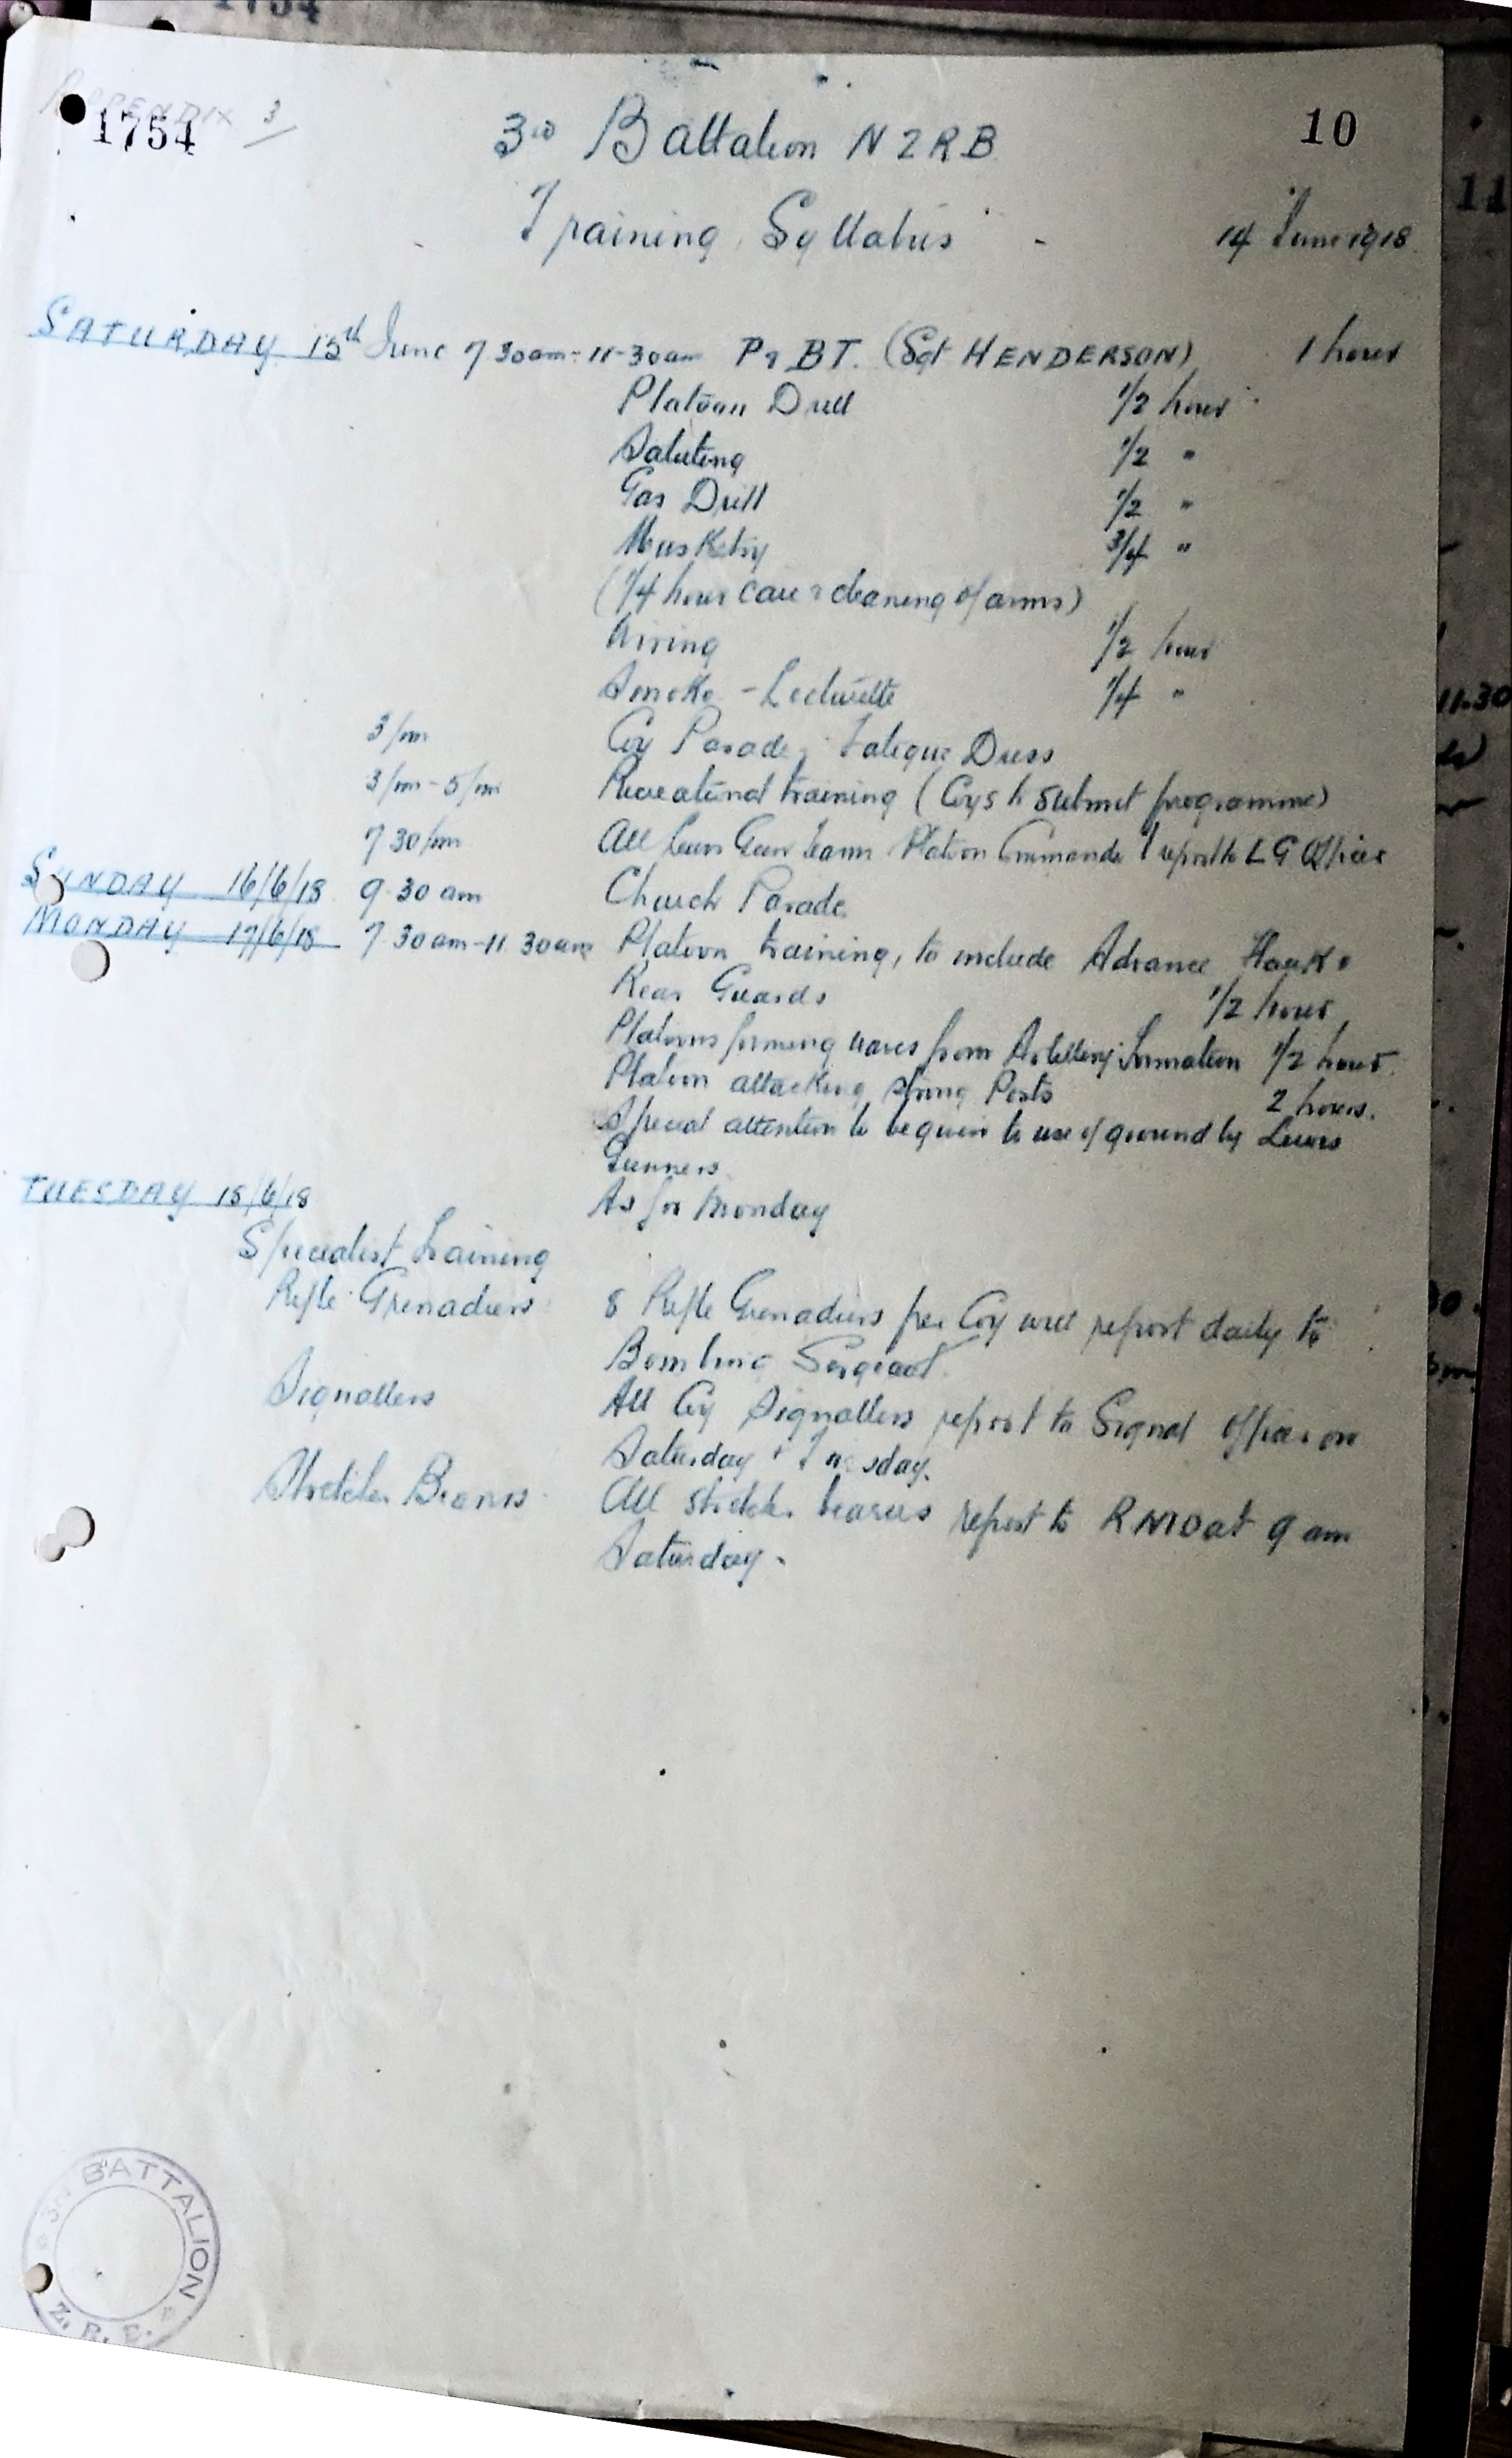 APPENDIX 3
1754
10
3rd Battalion NZRB
Training Syllabus - 14 June 1918
SATURDAY 15th June 7 30am - 11-30am P & BT. (Sgt HENDERSON) 1 hour
Platoon Drill 1/2 hour
Saluting 1/2 "
Gas Drill 1/2 "
Musketry 3/4 "
(1/4 hour care & cleaning of arms)
Wiring 1/2 hour
Smoke - Lecturette 1/4 "
3 pm Coy Parade, Fatigue Dress
3 pm - 5 pm Recreational training (Coys to submit programme)
7 30 pm All Lewis Gun teams Platoon Commanders report to LG Officer
SUNDAY 16/6/18 9.30 am Church Parade
MONDAY 17/6/18 7.30am - 11.30am Platoon training, to include Advance Flank &
Rear Guards 1/2 hour
Platoons forming waves from Artillery formation 1/2 hour.
Platoon attacking strong Posts 2 hours.
Special attention to be given to use of ground by Lewis
Gunners.
TUESDAY 18/6/18 As for Monday
Specialist Training
Rifle Grenadiers 8 Rifle Grenadiers per Coy will report daily to
Bombing Sergeant.
Signallers All Coy Signallers report to Signal Officer on
Saturday & Tuesday.
Stretcher Bearers All stretcher bearers report to RMO at 9 am
Saturday.
3RD BATTALION
Z. R. E.
11
11.30